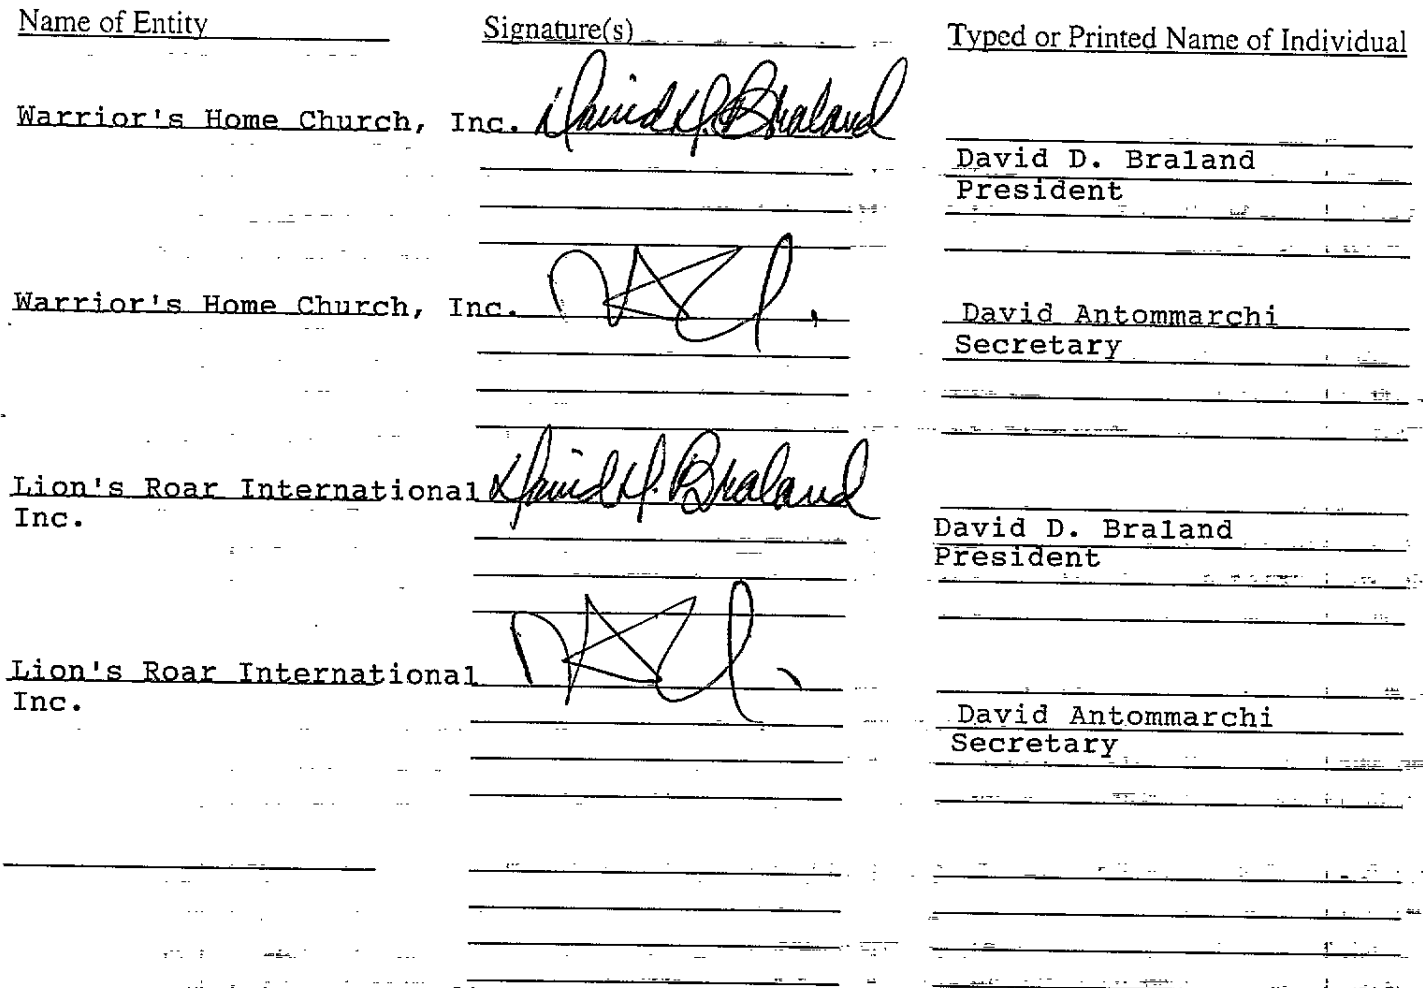 Name of Entity Signature(s) Typed or Printed Name of Individual
Warrior's Home Church, Inc. David D. Braland
David D. Braland
President
Warrior's Home Church, Inc. David Antommarchi
Secretary
Lion's Roar International David D. Braland
Inc. David D. Braland
President
Lion's Roar International
Inc. David Antommarchi
Secretary